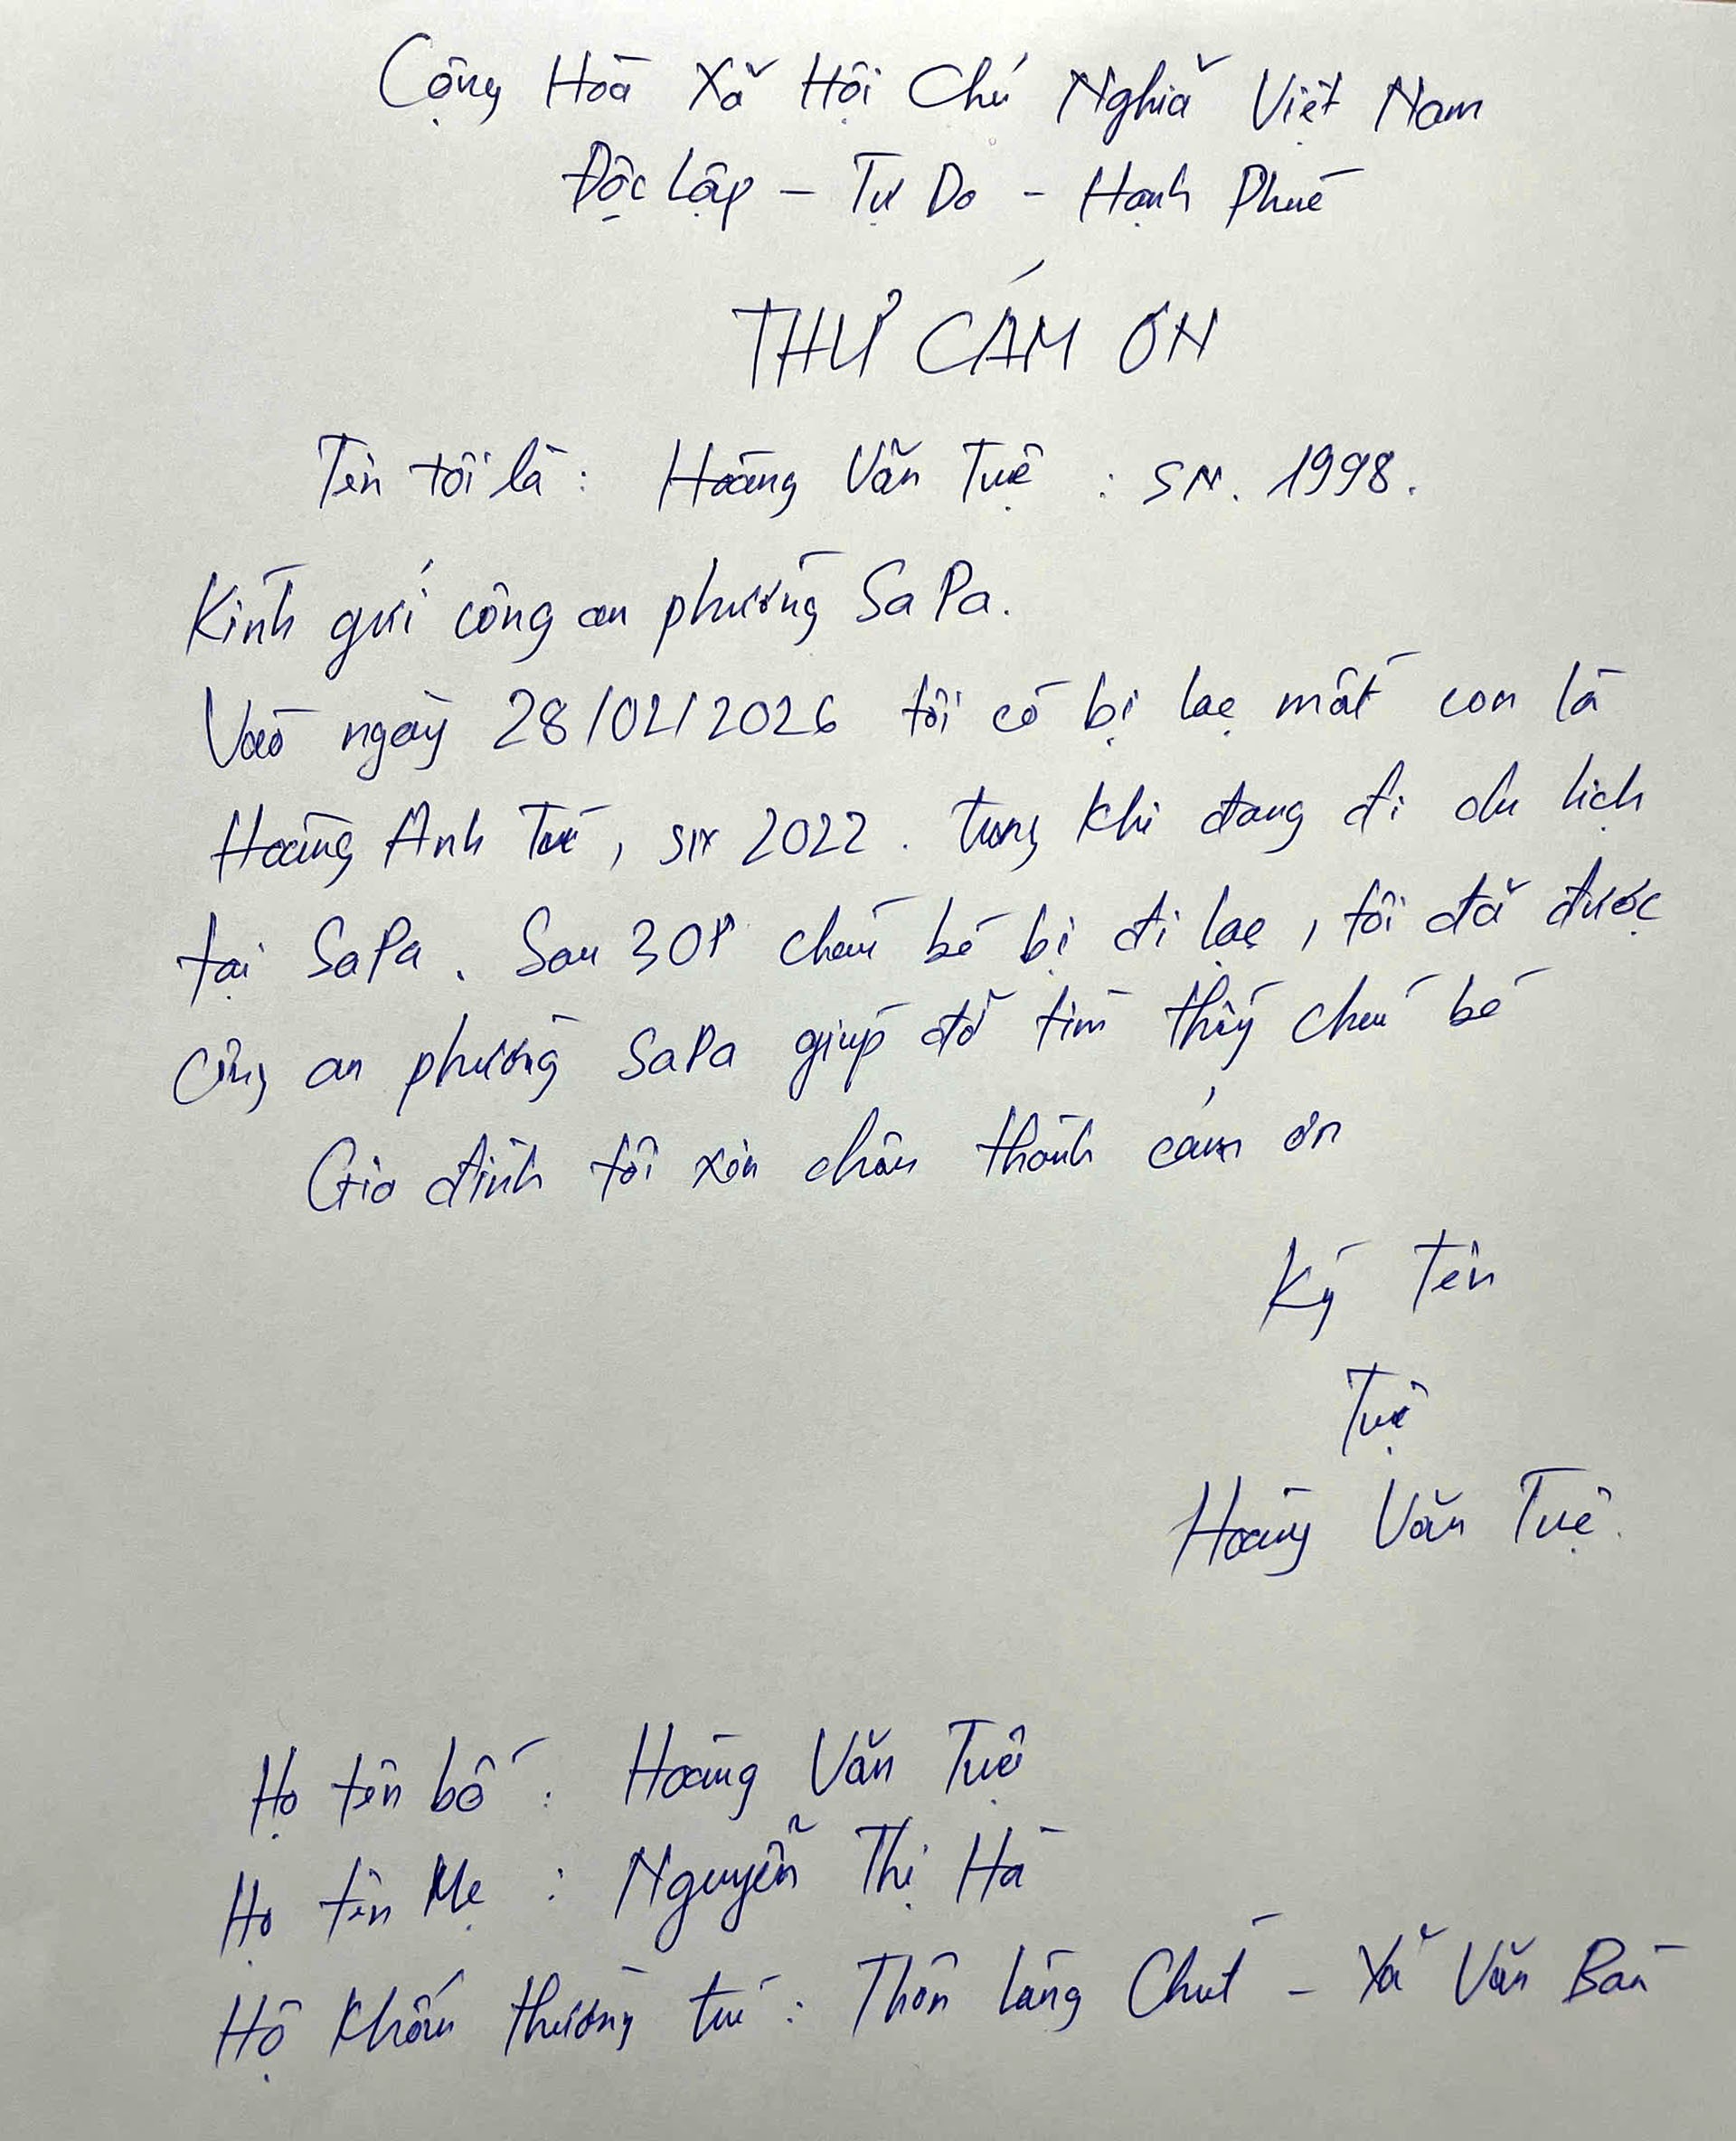 Cộng Hòa Xã Hội Chủ Nghĩa Việt Nam
Độc lập - Tự Do - Hạnh Phúc
THƯ CẢM ƠN
Tên tôi là : Hoàng Văn Tuệ : SN. 1998.
Kính gửi công an phường SaPa.
Vào ngày 28/02/2026 tôi có bị lạc mất con là
Hoàng Anh Tú, SN 2022. trong khi đang đi du lịch
tại SaPa. Sau 30P cháu bé bị đi lạc, tôi đã được
công an phường SaPa giúp đỡ tìm thấy cháu bé
Gia đình tôi xin chân thành cảm ơn
Ký Tên
Tuệ
Hoàng Văn Tuệ.
Họ tên bố : Hoàng Văn Tuệ
Họ tên Mẹ : Nguyễn Thị Hà
Hộ Khẩu thường trú : Thôn Làng Chút - Xã Văn Bàn